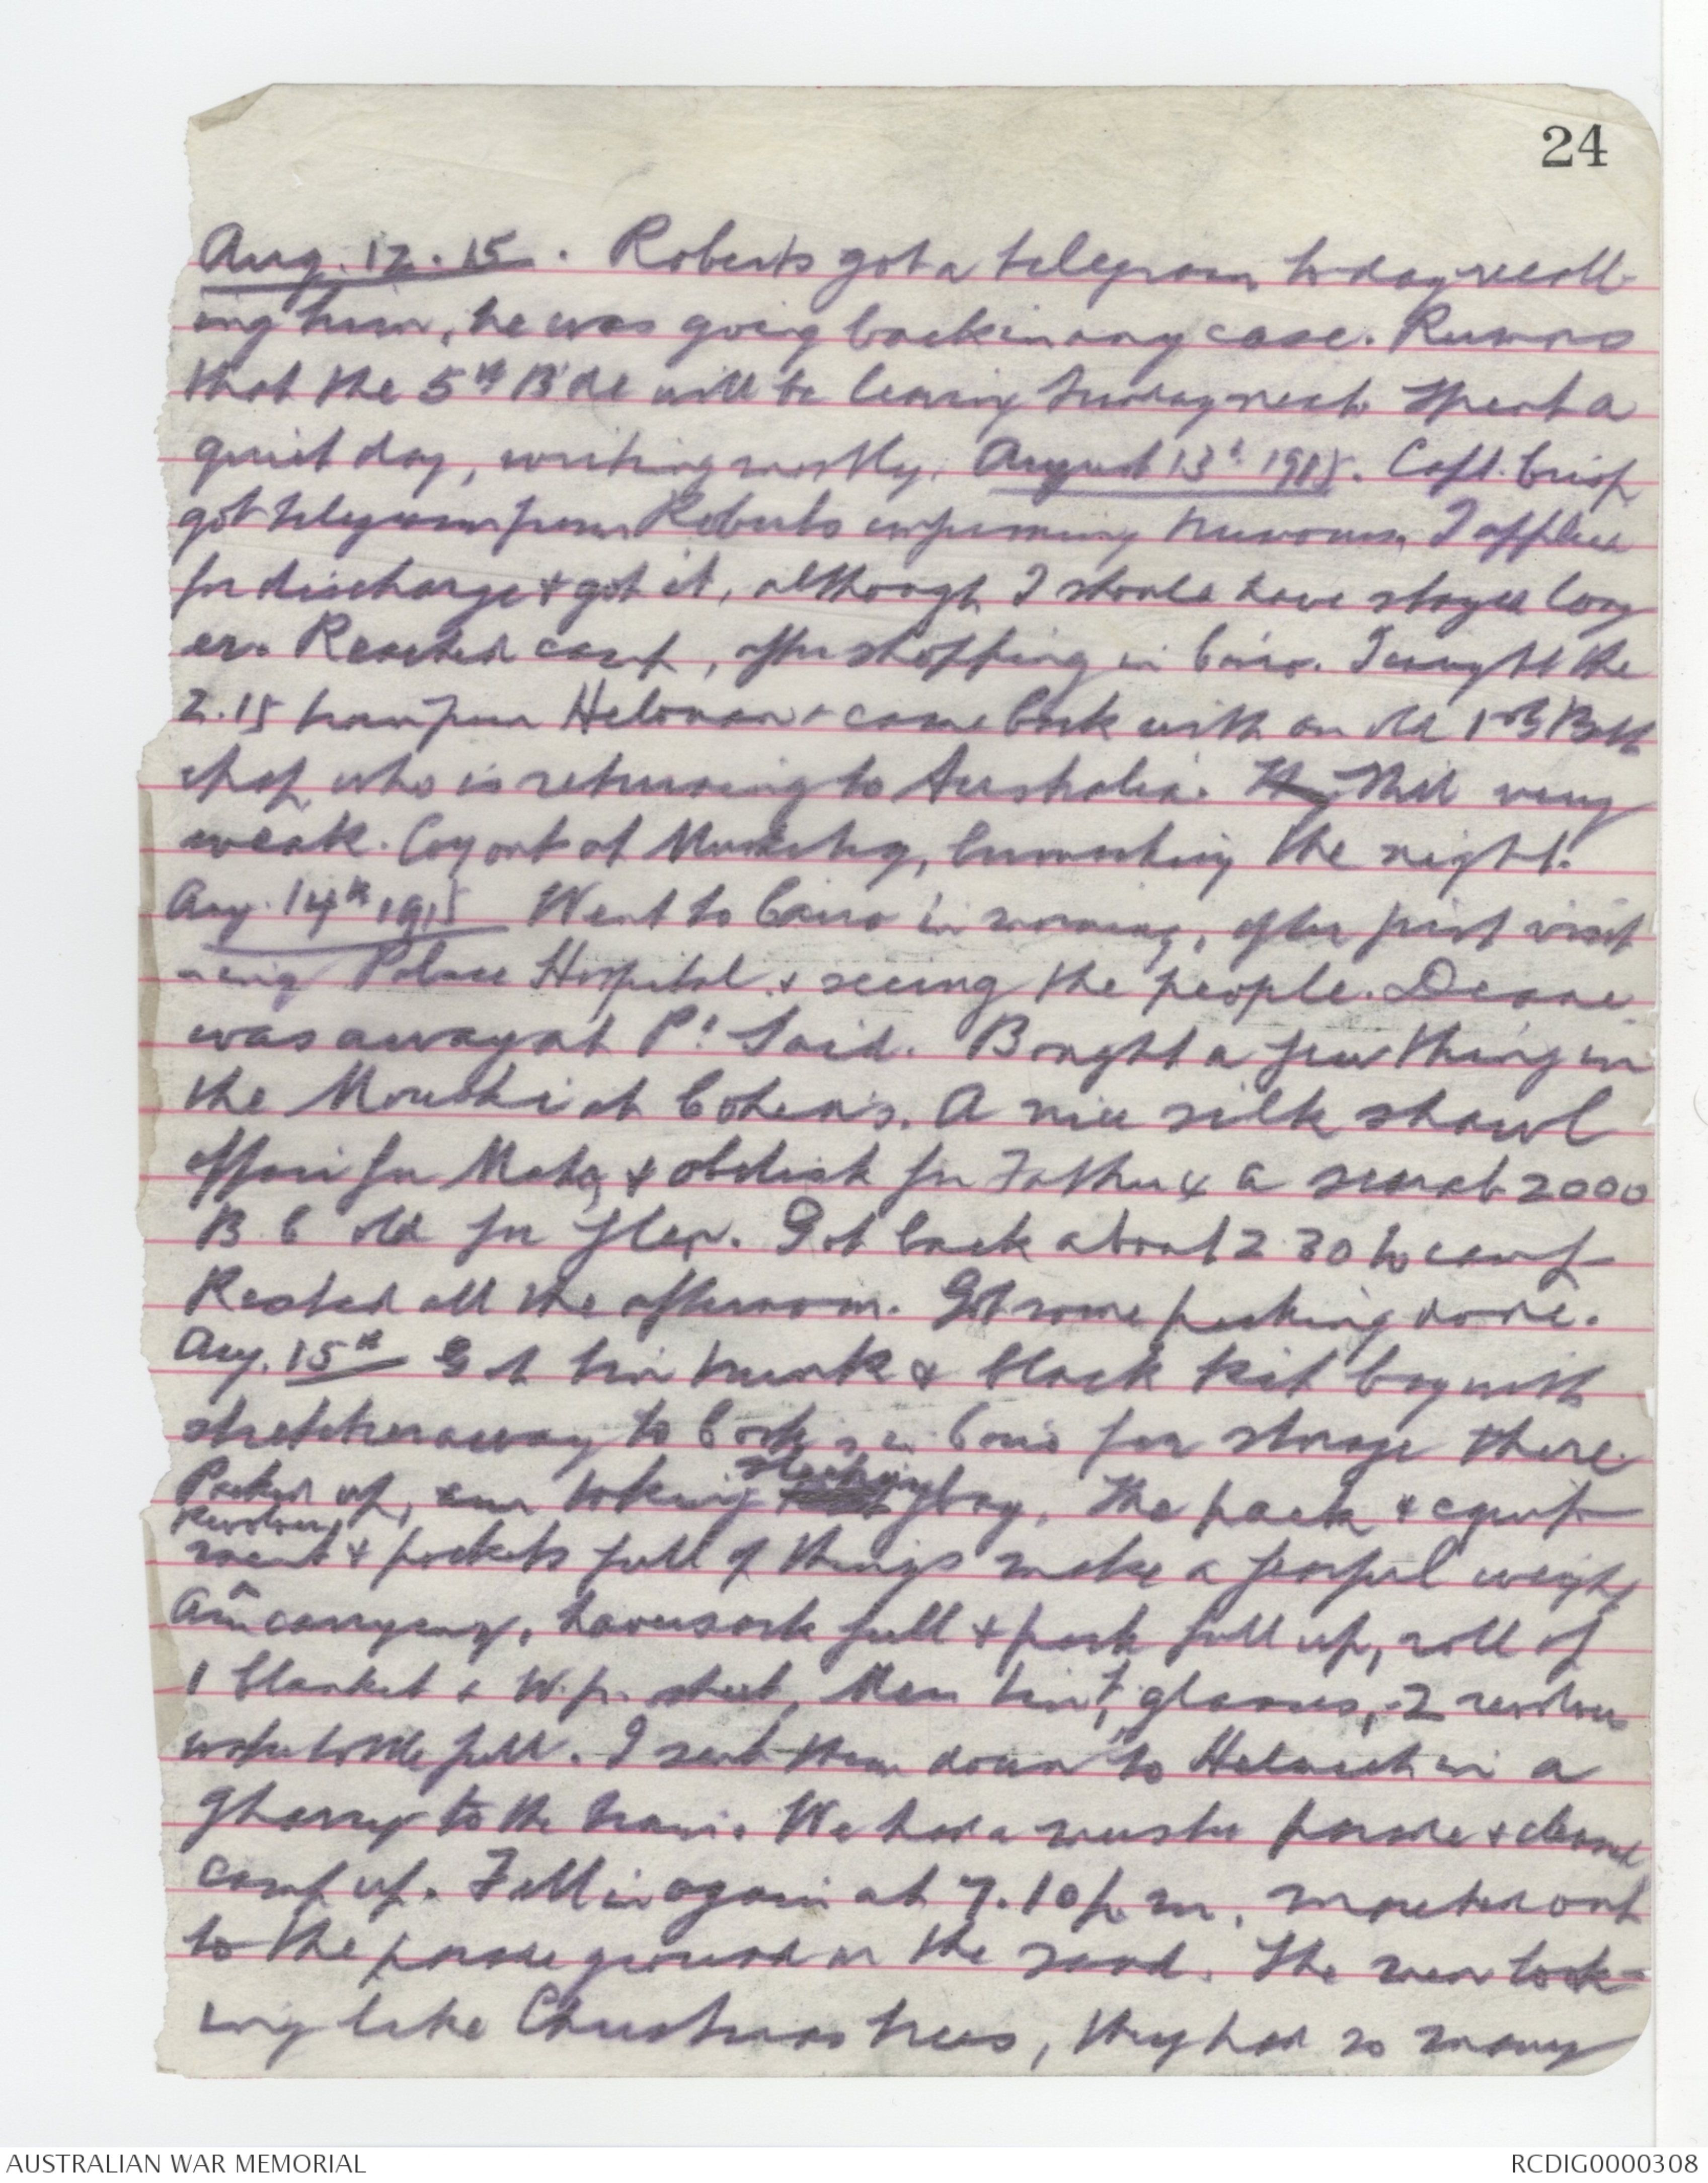 24
Aug. 12. 15. Roberts got a telegram today recall-
ing him, he was going back in any case. Rumors
that the 5th B'de will be leaving Sunday next. Spent a
quiet day, writing mostly. August 13th 1915. Capt. Crisp
got telegram from Roberts confirming rumours. I applied
for discharge & got it, although I should have stayed long
er. Reached camp, after shopping in Cairo. I caught the
2.15 train from Helouan & came back with an old 1st Batt
chap who is returning to Australia. Still very
weak. Coy out at Musketry, bivouacking the night.
Aug. 14th 1915 Went to Cairo in morning, after first visit
-ing Palace Hospital & seeing the people. Deane
was away at Pt Said. Bought a few things in
the Mouski at Cohen's. A nice silk shawl
affair for Mater & obelisk for Father & a scarab 2000
B C old for Glen. Got back about 2.30 to camp
Rested all the afternoon. Got some packing done.
Aug. 15th Got tin trunk & black kit bag with
stretcher away to Cook's in Cairo for storage there.
Packed up, am taking sleeping bag. The pack & equip-
Revolver,
ment & pockets full of things make a fearful weight
Am carrying, haversack full & pack full up, roll of
1 blanket & W.p. sheet, Mess tin, glasses, 2 revolvers
water bottle full. I sent them down to Helmieh in a
gharry to the train. We had a muster parade & cleaned
camp up. Fall in again at 7.10 p.m. marched out
to the parade ground on the sand. The men look-
ing like Christmas trees, they had so many
AUSTRALIAN WAR MEMORIAL
RCDIG0000308